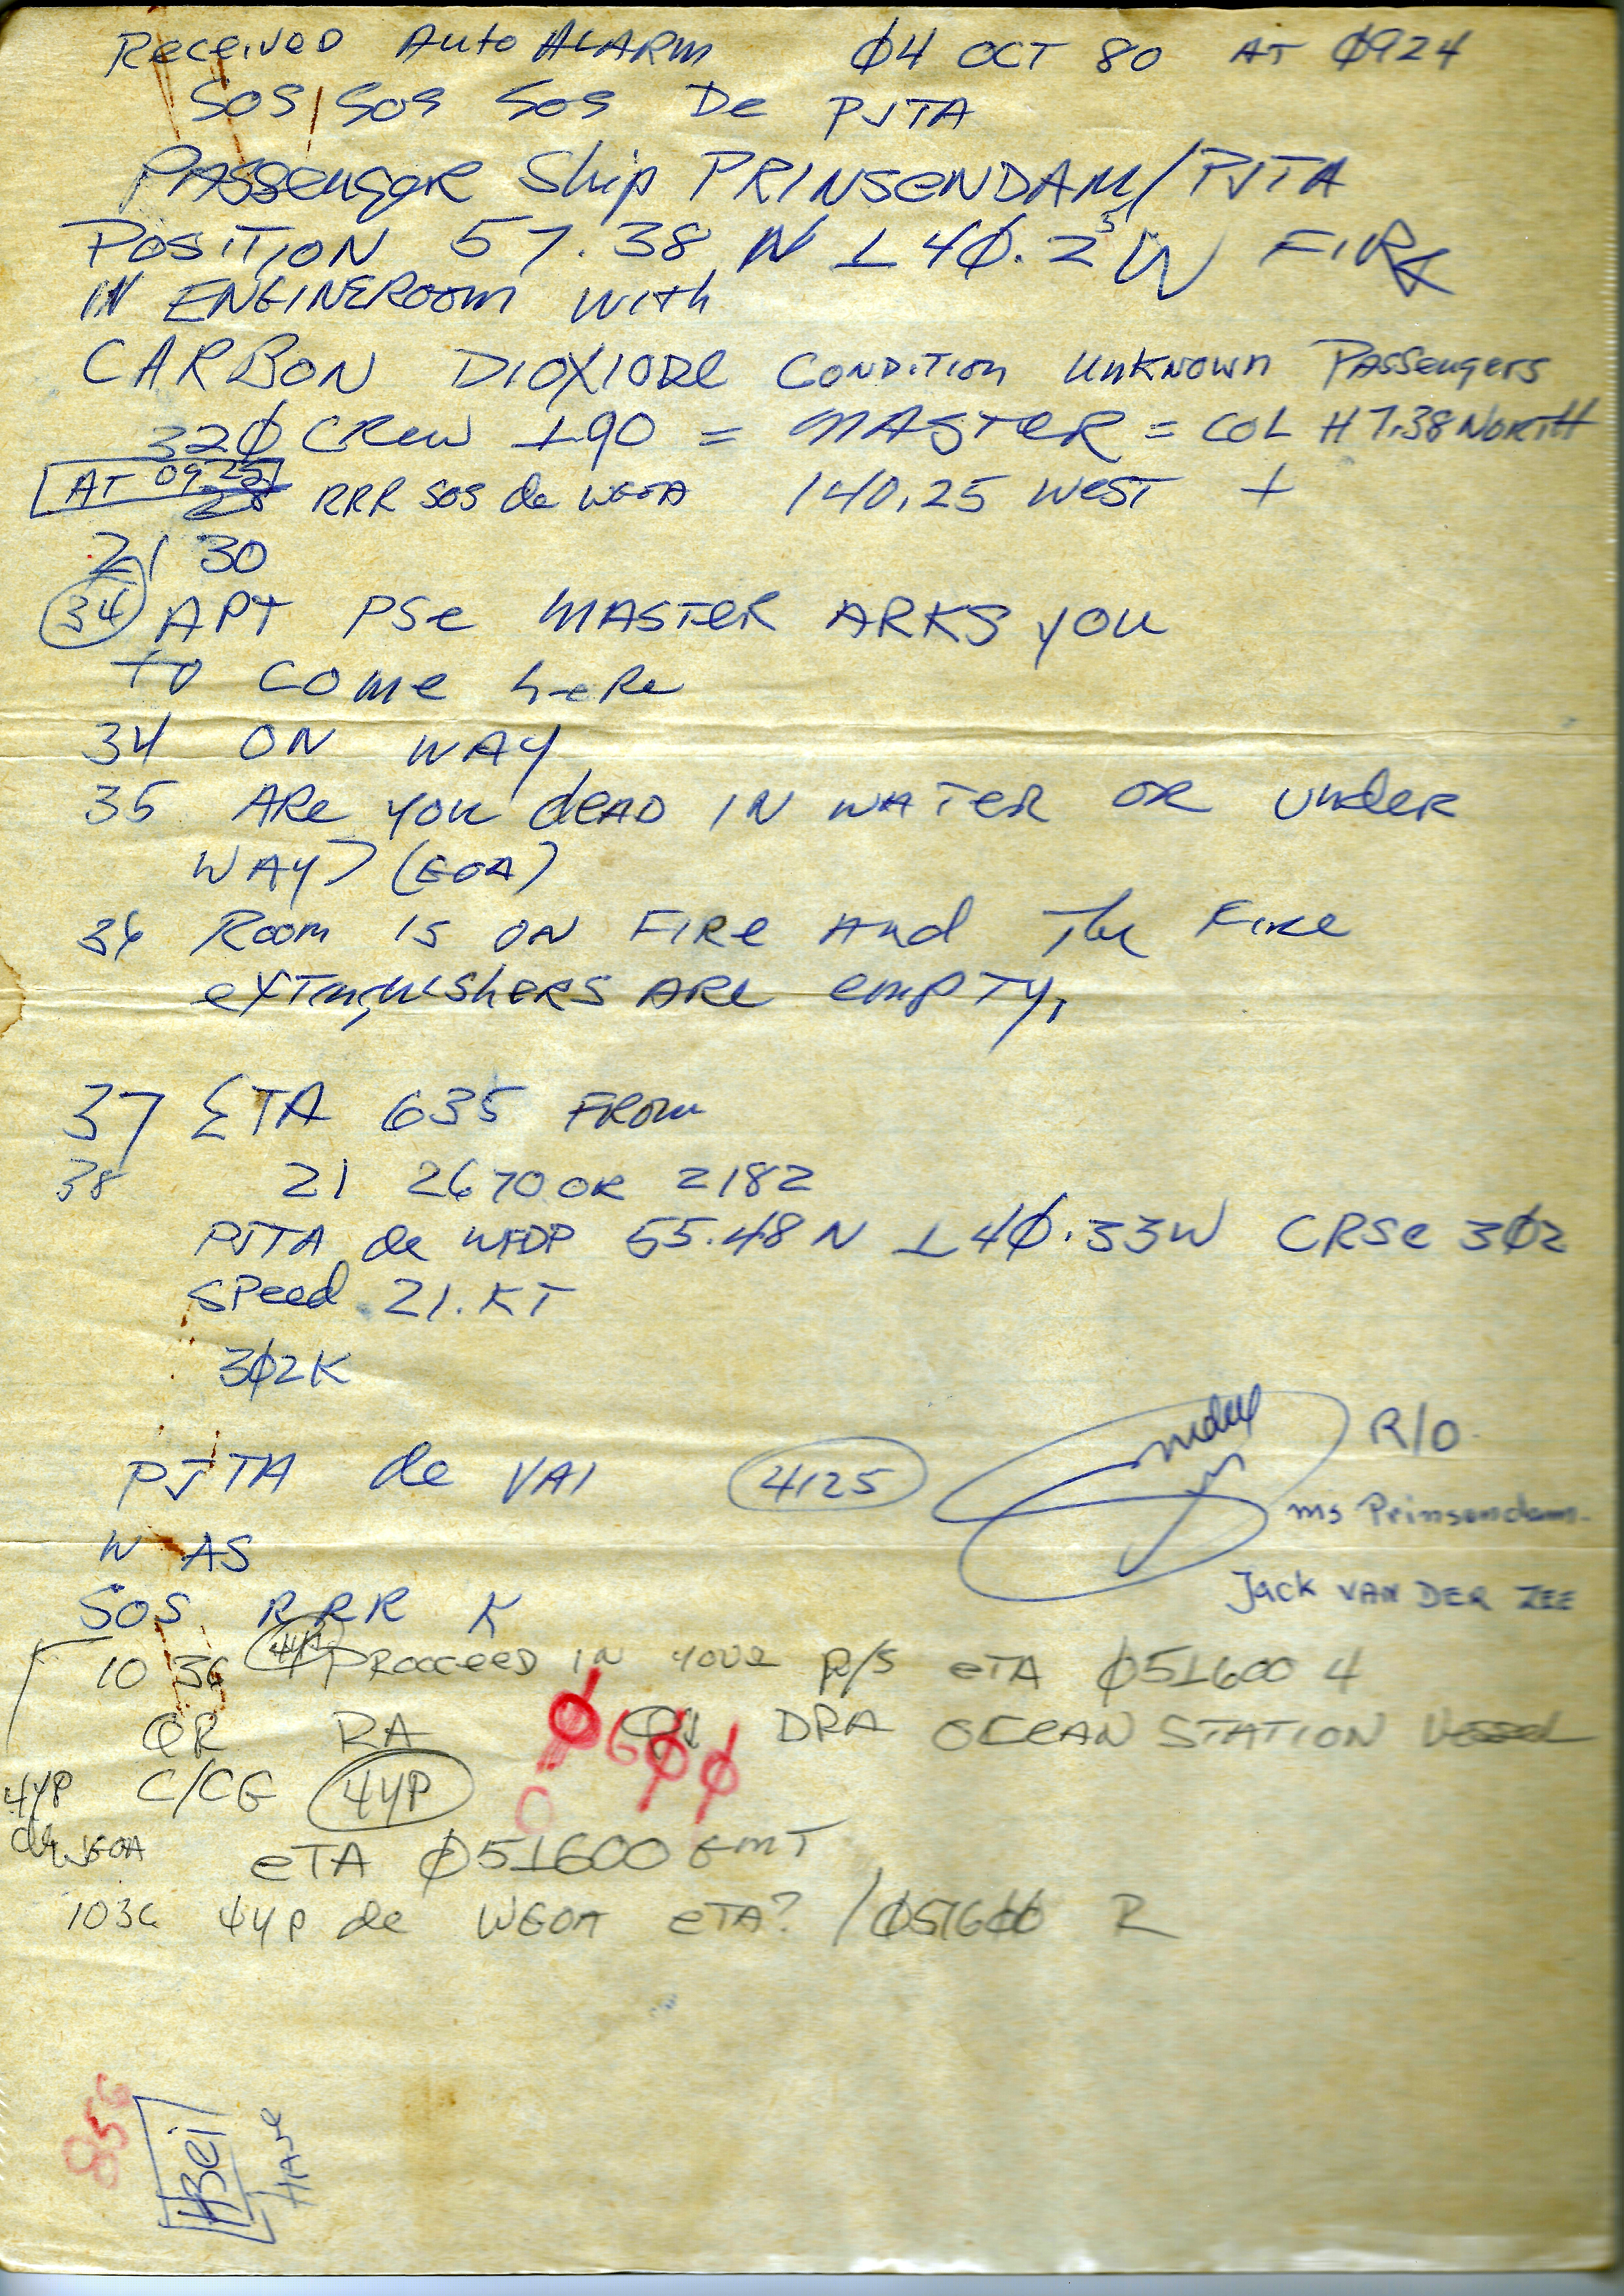 Received Auto ALARM Ø4 OCT 80 AT Ø924
SOS SOS SOS De PJTA
PASSengeR Ship PRINSENDAM/PJTA
POSITION 57.38 N 14Ø.25 W FIRE
IN ENGINEROOM with
CARBON DIOXIODE CONDITION UNKNOWN PASSengers
32Ø CRew 190 = MASTER = COL H 7.38 NORTH
AT 09.25 RRR SOS de WGOA 140.25 WEST +
21 30
34 APT PSe MASTER ARKS you
to come heRe
34 ON WAY
35 ARe you deAD IN WATER OR UndeR
WAY? (GOA)
36 Room IS ON FIRe And The Fire
exTinguishERS ARe empTy,
37 ETA 635 FROM
38 21 2670 OR 2182
PJTA de WFDP 55.48 N 14Ø.33W CRSe 3Ø2
SPeed 21.KT
3Ø2K
PJTA de VAI 4125 R/O
ms Prinsendam.
W AS
Jack VAN DER ZEE
SOS RRR K
10 36 4YP PROCCEED IN YOUR P/S eTA Ø51600 4
QR RA DRA OCEAN STATION Vessel
Ø6ØØ
4YP C/CG 4YP
de WGOA eTA Ø51600 GMT
1036 4YP de WGOA eTA? /Ø516ØØ R
856
HBei
HAVE